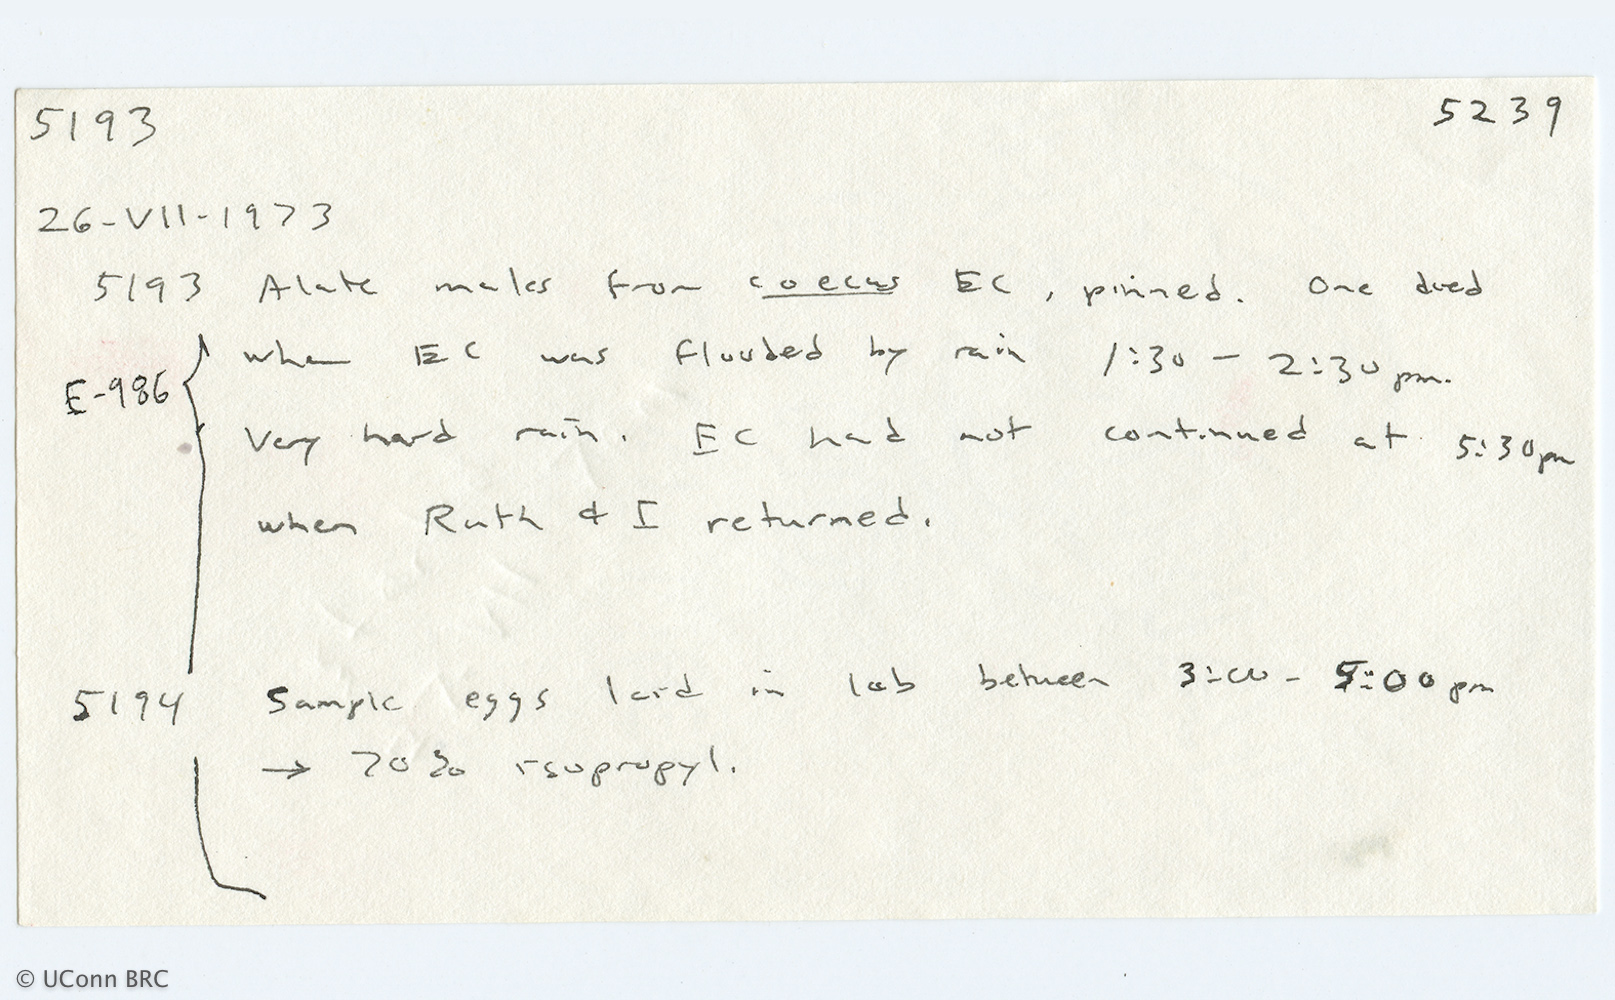 5193 5239
26-VII-1973
5193 Alate males from coecus EC, pinned. One died
when EC was flooded by rain 1:30 - 2:30 pm.
E-986
Very hard rain. EC had not continued at 5:30 pm
when Ruth & I returned.
5194 Sample eggs laid in lab between 3:00 - 5:00 pm
→ 70% isopropyl.
© UConn BRC